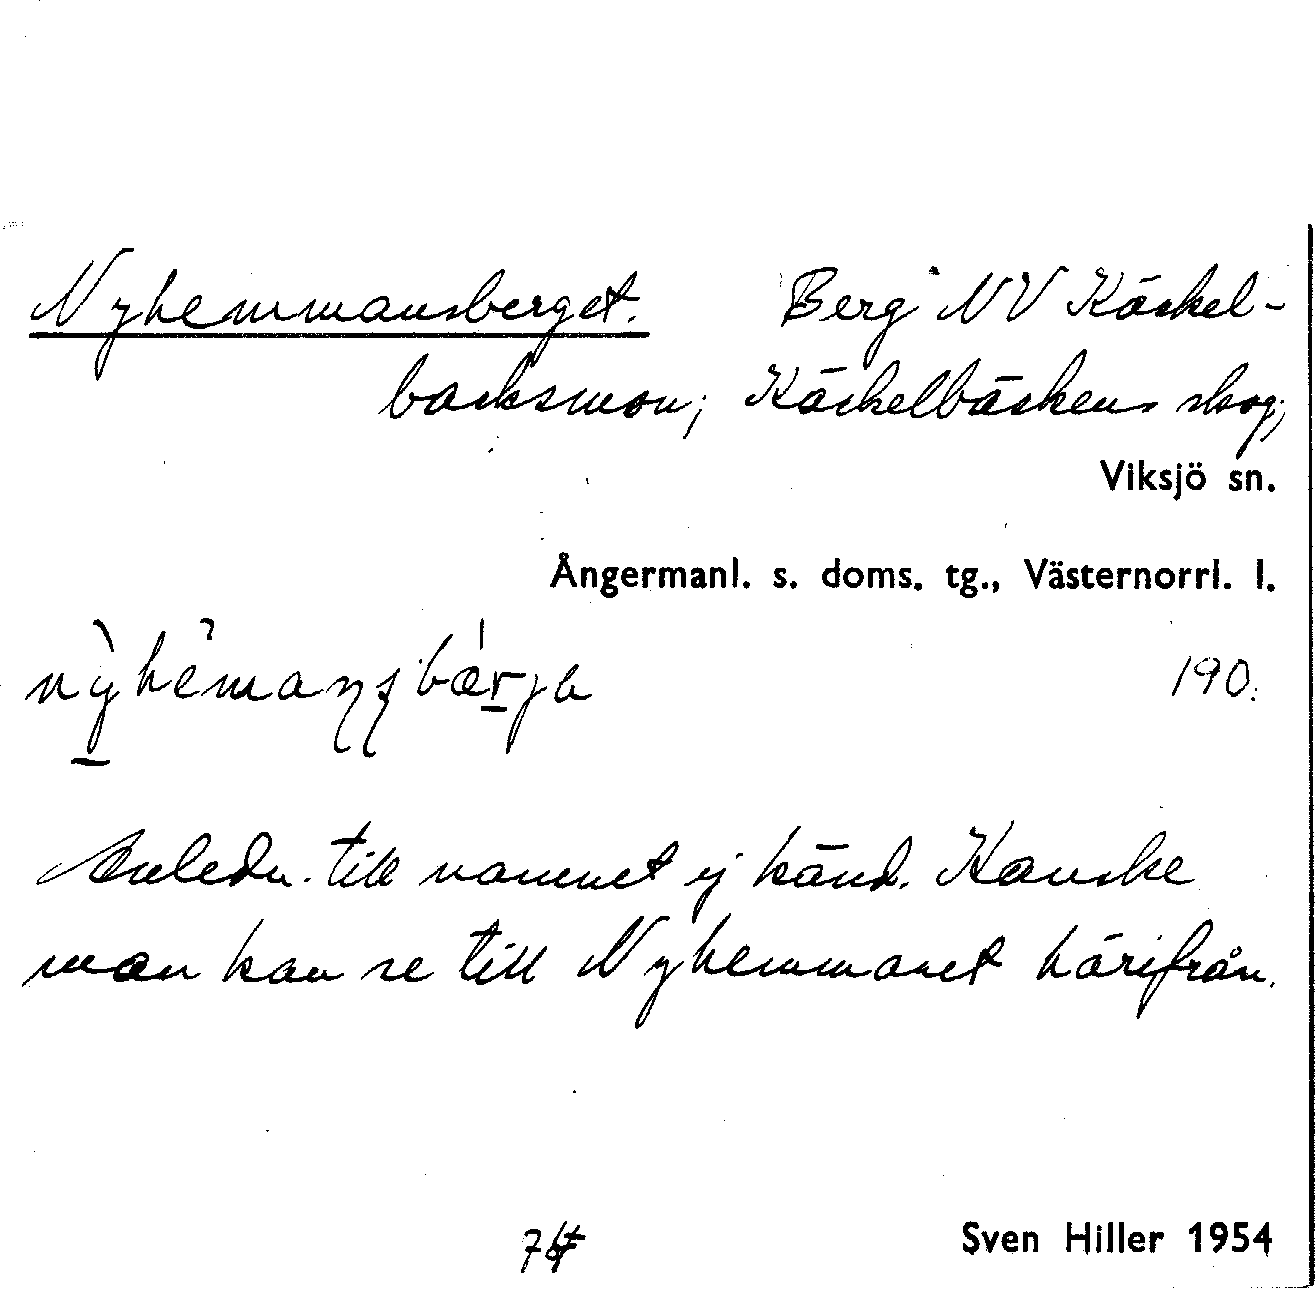 Nyhemmansberget. Berg NV Käckel-
backsmon; Käckelbäckens skog;
Viksjö sn.
Ångermanl. s. doms. tg., Västernorrl. l.
190.
Anledn. till namnet ej känd. Kanske
man kan se till Nyhemmanet härifrån.
Sven Hiller 1954